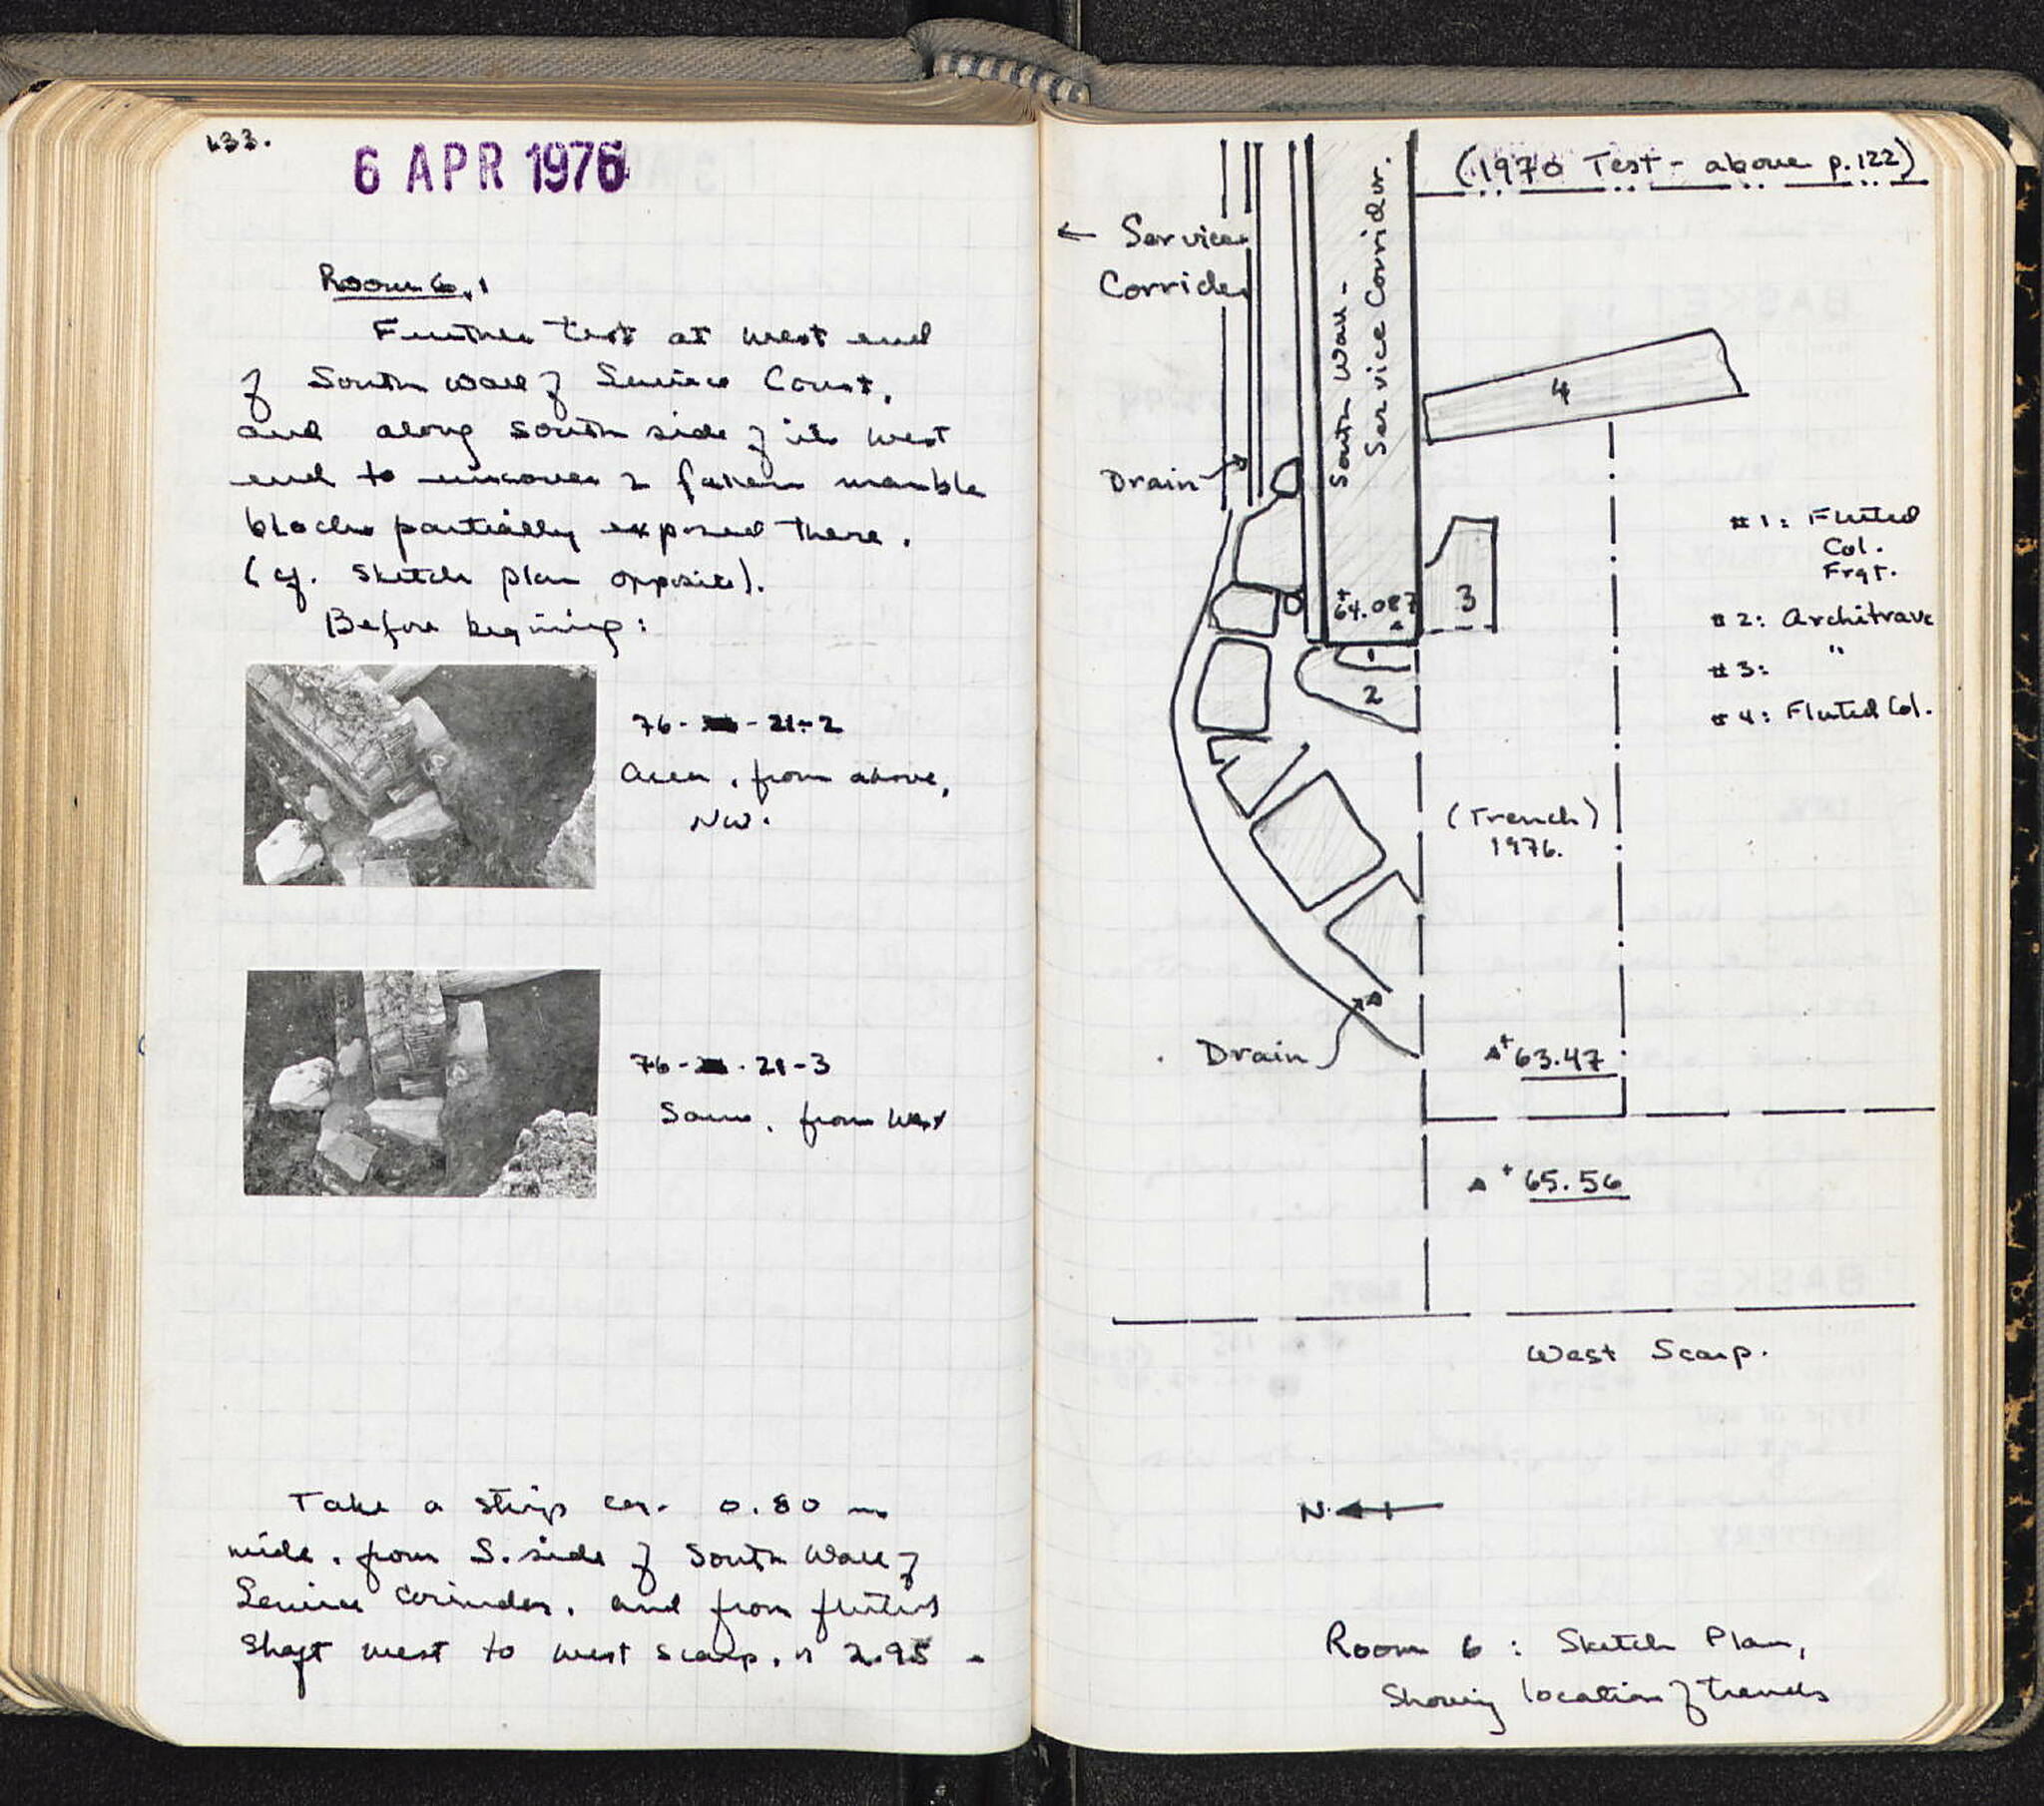 133.
6 APR 1976
Room 6.1
Further test at west end
of South wall of Service Court,
and along south side of its west
end to uncover 2 fallen marble
blocks partially exposed there.
(cf. Sketch plan opposite).
Before begining:
76- - 21-2
Area, from above,
NW.
76- - 21-3
Same, from West
Take a strip ca. 0.80 m
wide, from S. side of South Wall of
Service Corridor, and from fluted
shaft west to west scarp, 2.95
(1970 Test - above p.122)
← Service
Corridor
South Wall -
Service Corridor.
4
Drain
#1: Fluted
Col.
Frgt.
3
+
64.087
#2: Architrave
1
#3: "
2
#4: Fluted Col.
(Trench)
1976.
Drain
+ 63.47
+ 65.56
West Scarp.
N.
Room 6 : Sketch Plan,
Showing location of trench